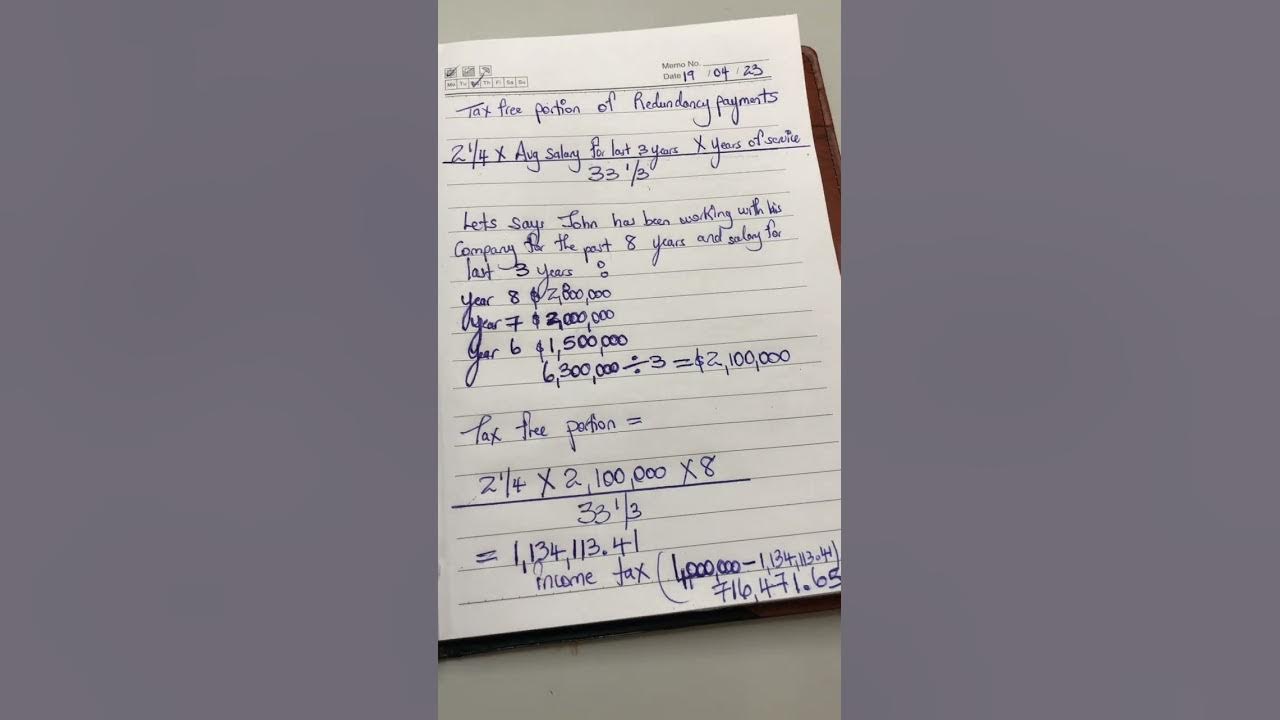 Memo No.
Date 19 / 04 / 23
Mo Tu Th Fr Sa Su
Tax free portion of Redundancy payments
2 1/4 X Avg Salary for last 3 years X years of service
33 1/3
Lets says John has been working with his
Company for the past 8 years and salary for
last 3 years :
year 8 $2,800,000
year 7 $2,000,000
year 6 $1,500,000
6,300,000 ÷ 3 = $2,100,000
Tax free portion =
2 1/4 X 2,100,000 X 8
33 1/3
= 1,134,113.41
income tax (4,000,000 - 1,134,113.41)
716,471.65